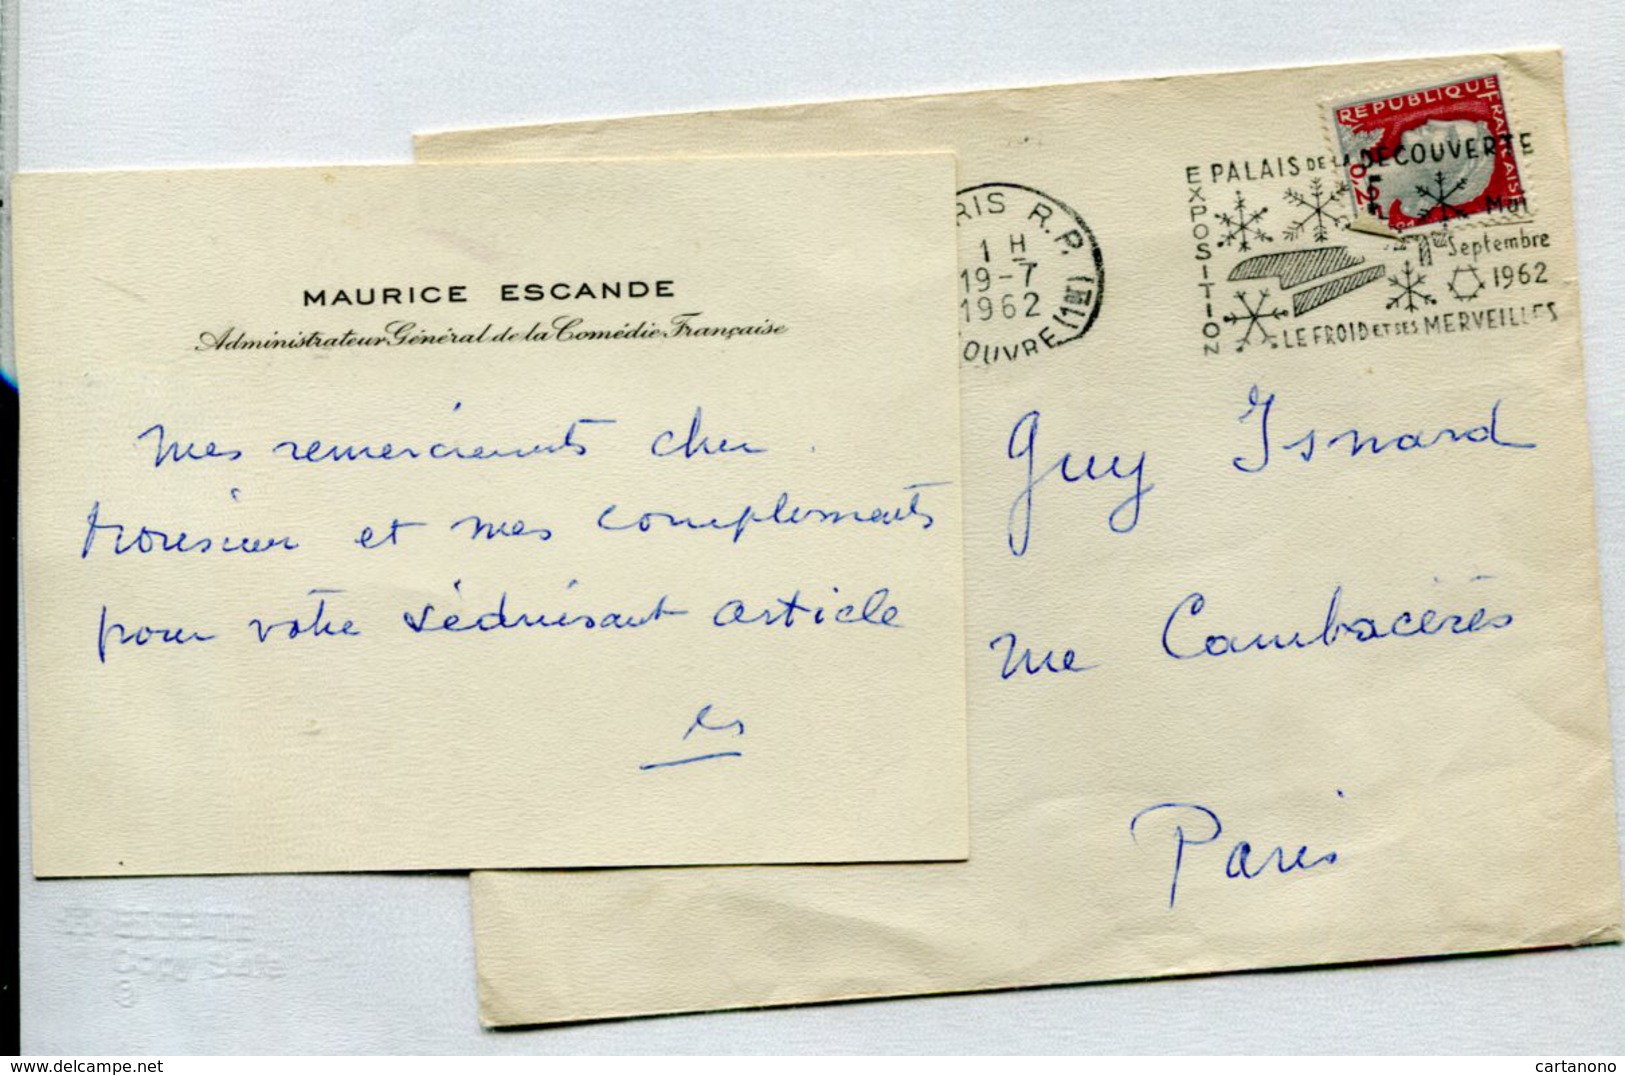 MAURICE ESCANDE
Administrateur Général de la Comédie Française
Mes remerciements cher
Monsieur et mes compliments
pour votre séduisant article
es
RIS R.P.
1 H
19-7
1962
OUVRE (1er)
REPUBLIQUE FRANÇAISE
EXPOSITION
PALAIS DE LA DECOUVERTE
Mai
Septembre
1962
LE FROID ET SES MERVEILLES
Guy Isnard
rue Cambacérès
Paris
delcampe.net
cartanono